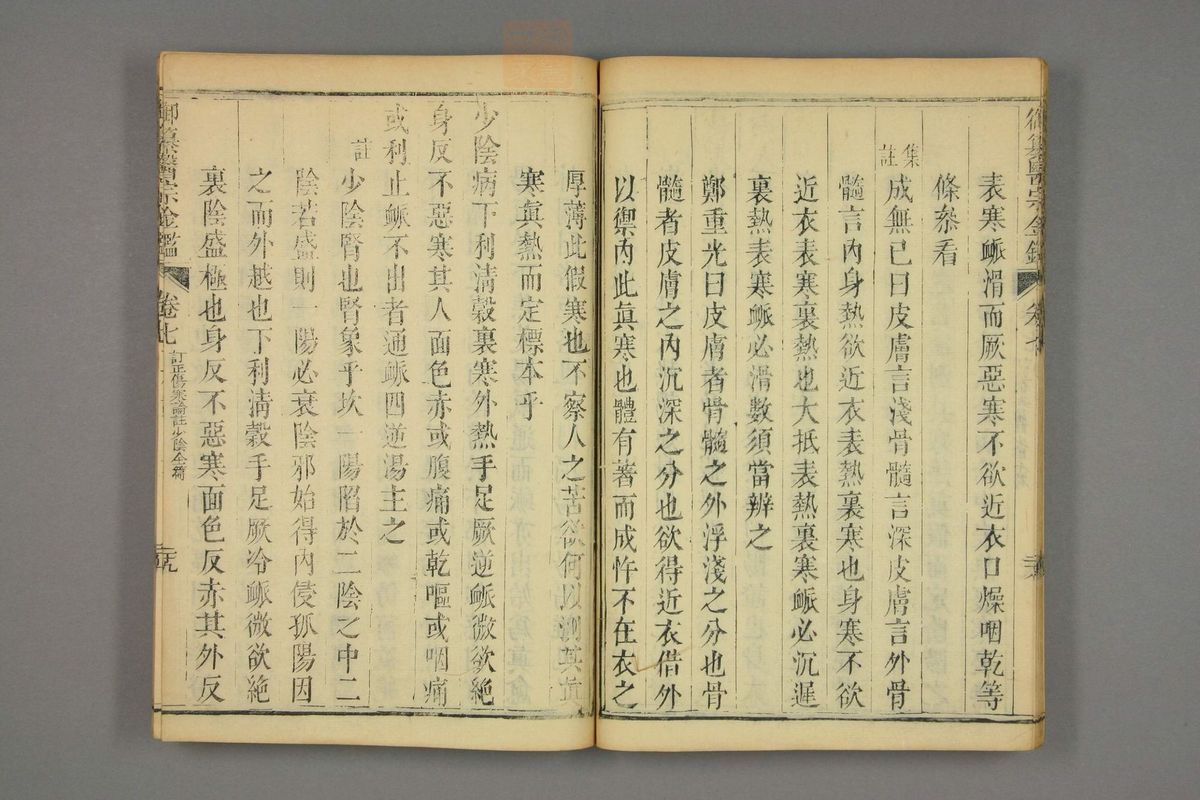 表寒䘑滑而厥惡寒不欲近衣口燥咽乾等
條叅看
集註
成無已曰皮膚言淺骨髓言深皮膚言外骨
髓言內身熱欲近衣表熱裏寒也身寒不欲
近衣表寒裏熱也大抵表熱裏寒䘑必沉遲
裏熱表寒䘑必滑數須當辨之
鄭重光曰皮膚者骨髓之外浮淺之分也骨
髓者皮膚之內沉深之分也欲得近衣借外
以禦內此眞寒也體有著而成忤不在衣之
厚薄此假寒也不察人之苦欲何以測其眞
寒眞熱而定標本乎
少陰病下利清穀裏寒外熱手足厥逆䘑微欲絕
身反不惡寒其人面色赤或腹痛或乾嘔或咽痛
或利止䘑不出者通䘑四逆湯主之
註
少陰腎也腎象乎坎一陽陷於二陰之中二
陰若盛則一陽必衰陰邪始得內侵孤陽因
之而外越也下利清穀手足厥冷䘑微欲絕
裏陰盛極也身反不惡寒面色反赤其外反
御纂醫宗金鑑
卷七
訂正傷寒論註少陰全篇
二十九